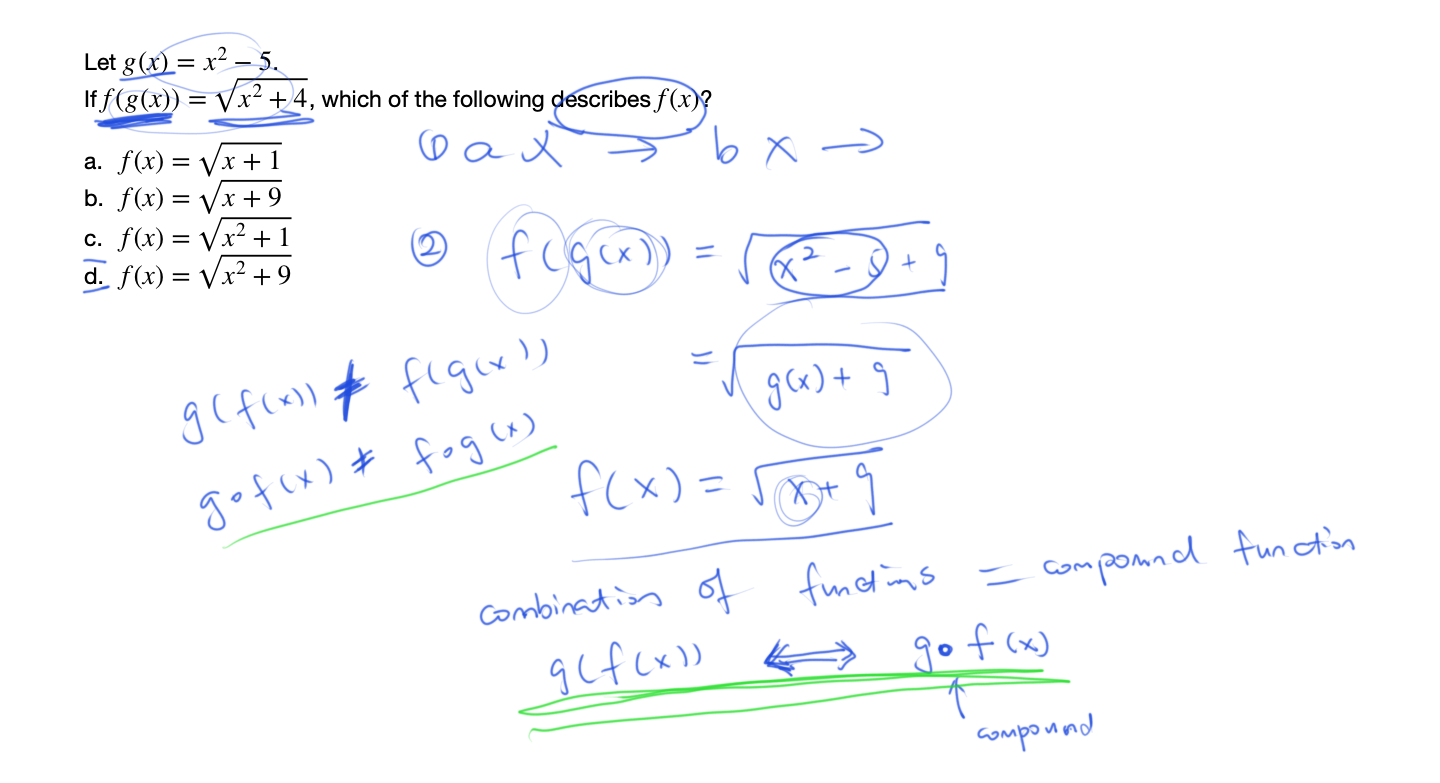 Let g(x) = x² − 5.
If f(g(x)) = √(x² + 4), which of the following describes f(x)?
a. f(x) = √(x + 1)
b. f(x) = √(x + 9)
c. f(x) = √(x² + 1)
d. f(x) = √(x² + 9)
① a x → b x →
② f(g(x)) = √(x² − 5 + 9)
= √(g(x) + 9)
g(f(x)) ≠ f(g(x))
g∘f(x) ≠ f∘g(x)
f(x) = √(x + 9)
combination of functions = compound function
g(f(x)) ⟺ g∘f(x)
↑
compound